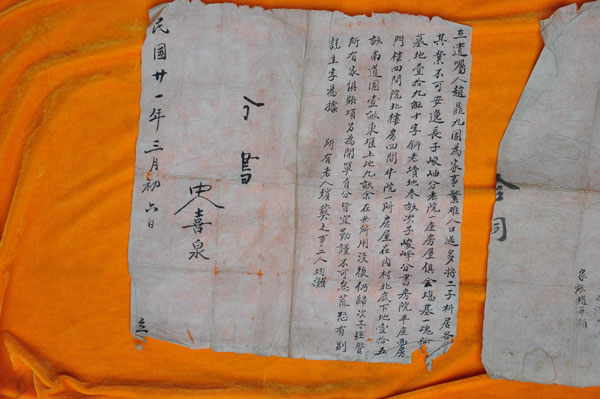 立遺囑人趙鼎九因為家事繁雜人口過多將二子析居各
其業不可安逸長子峻岫分老院一座房屋俱全場基一塊
墓地壹拾九畝十字斜老墳地叁畝次子峻峰分書房院半座西房
門樓四間院北樓房四間牛院一所房屋在內村北底下地壹拾五
畝南道園壹畝東堆土地九畝余在世所用沒後仍歸次子經管
所有家俱賬項另為開單自分皆宜勤謹不可怠荒恐有別
訛生字為據 所有老人殯葬之事二人均攤
分書
史喜泉
民國廿一年三月初六日
立
合同